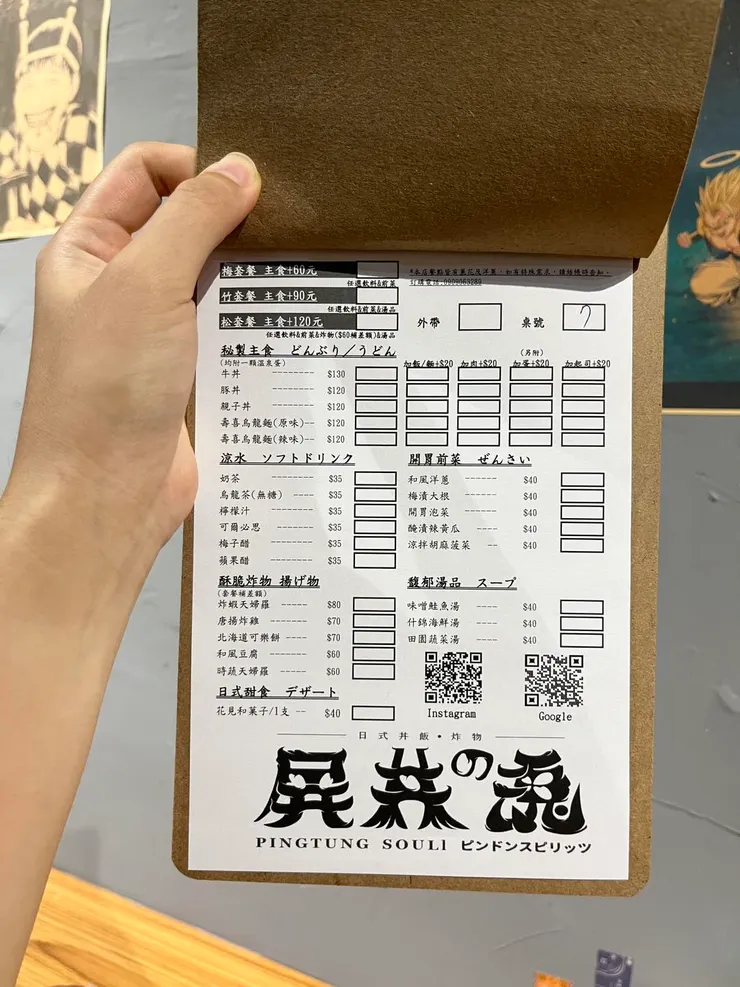 梅套餐 主食+60元
任選飲料&前菜
竹套餐 主食+90元
任選飲料&前菜&湯品
松套餐 主食+120元
任選飲料&前菜&炸物($60補差額)&湯品
*本店餐點皆有蔥花及洋蔥，如有特殊需求，請結帳時告知。
訂購電話:0809069289
外帶
桌號 7
秘製主食 どんぶり／うどん
(均附一顆溫泉蛋)
(另附)
加飯/麵+$20 加肉+$20 加蛋+$20 加起司+$20
牛丼 -------- $130
豚丼 -------- $120
親子丼 -------- $120
壽喜烏龍麵(原味)-- $120
壽喜烏龍麵(辣味)-- $120
涼水 ソフトドリンク
奶茶 -------- $35
烏龍茶(無糖) ---- $35
檸檬汁 ------ $35
可爾必思 ------ $35
梅子醋 ------ $35
蘋果醋 ------ $35
開胃前菜 ぜんさい
和風洋蔥 ------ $40
梅漬大根 ------ $40
開胃泡菜 ------ $40
醃漬辣黃瓜 ----- $40
涼拌胡麻菠菜 -- $40
酥脆炸物 揚げ物
(套餐補差額)
炸蝦天婦羅 ----- $80
唐揚炸雞 ------ $70
北海道可樂餅 ---- $70
和風豆腐 ------ $60
時蔬天婦羅 ----- $60
馥郁湯品 スープ
味噌鮭魚湯 ---- $40
什錦海鮮湯 ---- $40
田園蔬菜湯 ---- $40
日式甜食 デザート
花見和菓子/1支 -- $40
Instagram
Google
日式丼飯・炸物
PINGTUNG SOULl ピンドンスピリッツ